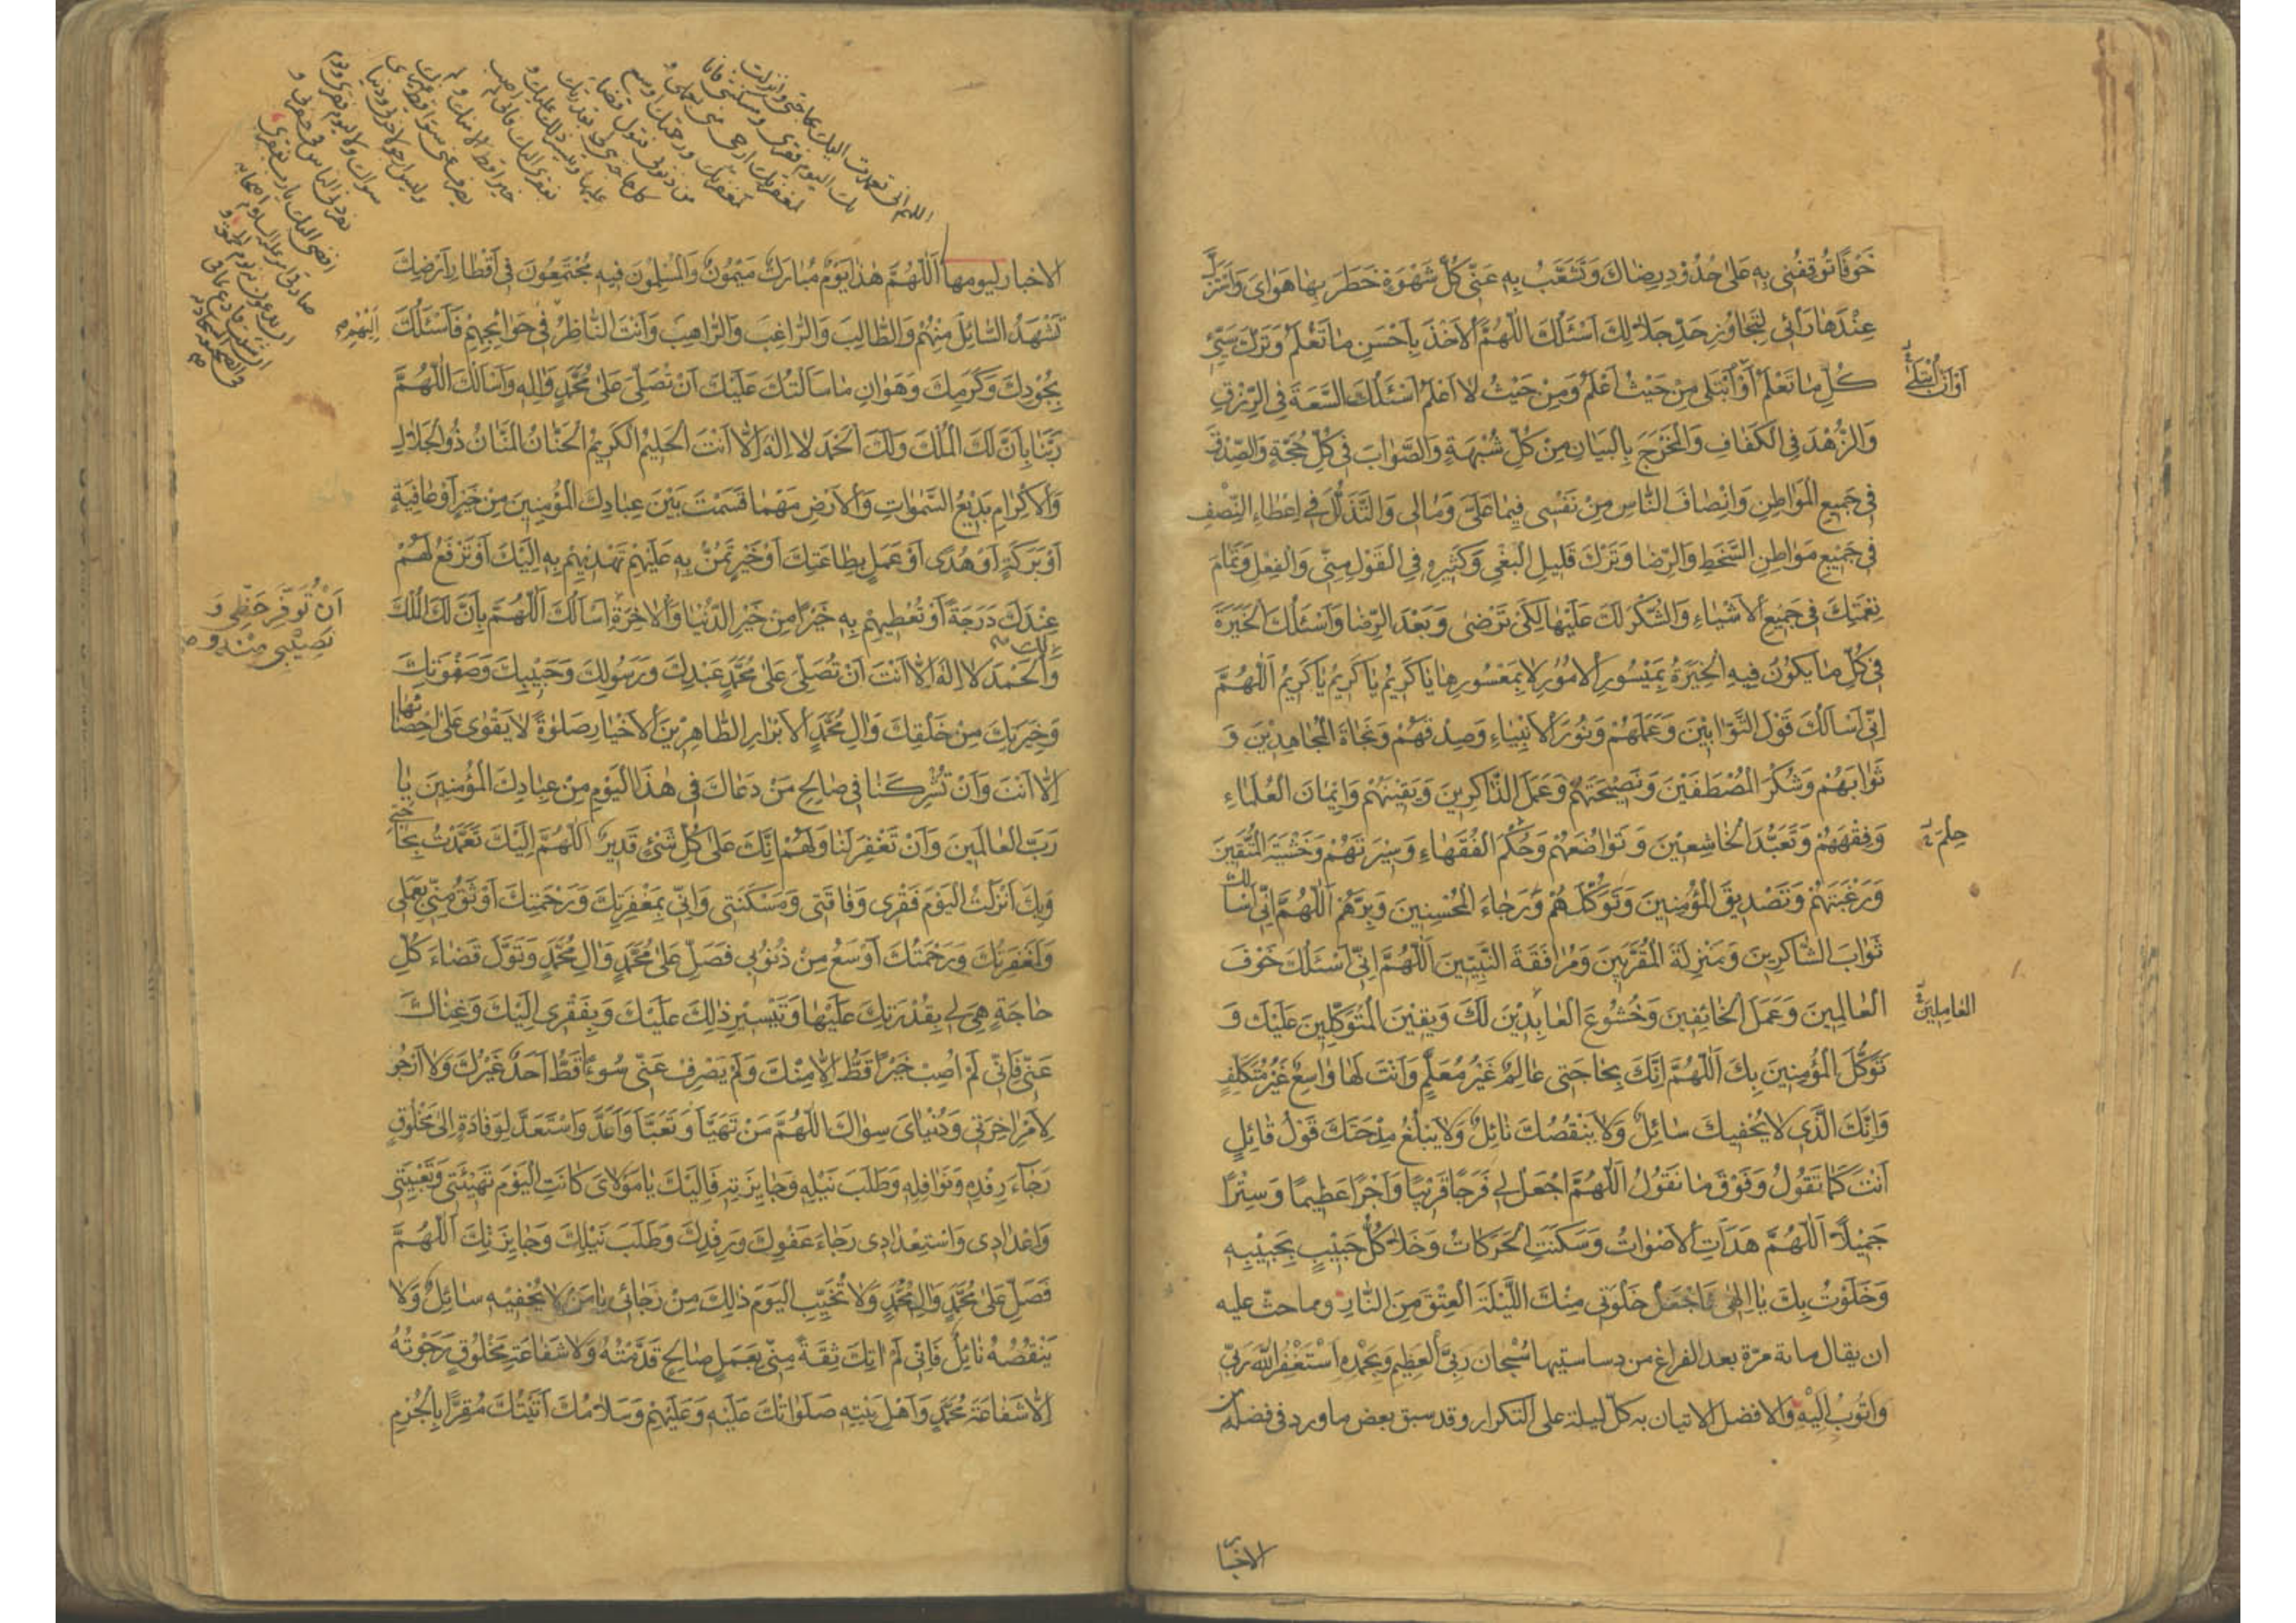 خَوْفًا تُوقِفُنِي بِهِ عَلىٰ حُدُودِ رِضَاكَ وَتُشَعِّبُ بِهِ عَنِّي كُلَّ شَهْوَةٍ خَطَرَ بِهَا هَوَايَ وَاسْتُزِلَّ
عِنْدَهَا رَأْئِي لِتَجَاوُزِ حَدِّ حَلَالِكَ اَسْئَلُكَ اللّٰهُمَّ الْاَخْذَ بِاَحْسَنِ مَا تَعْلَمُ وَتَرْكَ سَيِّئِ
كُلِّ مَا تَعْلَمُ اَوْ اُبْتَلىٰ مِنْ حَيْثُ اَعْلَمُ وَمِنْ حَيْثُ لَا اَعْلَمُ اَسْئَلُكَ السَّعَةَ فِي الرِّزْقِ
وَالزُّهْدَ فِي الْكَفَافِ وَالْمَخْرَجَ بِالْبَيَانِ مِنْ كُلِّ شُبْهَةٍ وَالصَّوَابَ فِي كُلِّ حُجَّةٍ وَالصِّدْقَ
فِي جَمِيعِ الْمَوَاطِنِ وَاِنْصَافَ النَّاسِ مِنْ نَفْسِي فِيمَا عَلَيَّ وَمَالِي وَالتَّذَلُّلَ فِي اِعْطَاءِ النِّصْفِ
فِي جَمِيعِ مَوَاطِنِ السَّخَطِ وَالرِّضَا وَتَرْكَ قَلِيلِ الْبَغْيِ وَكَثِيرِهِ فِي الْقَوْلِ مِنِّي وَالْفِعْلِ وَتَمَامَ
نِعْمَتِكَ فِي جَمِيعِ الْاَشْيَاءِ وَالشُّكْرَ لَكَ عَلَيْهَا لِكَيْ تَرْضىٰ وَبَعْدَ الرِّضَا وَاَسْئَلُكَ الْخِيَرَةَ
فِي كُلِّ مَا يَكُونُ فِيهِ الْخِيَرَةُ بِمَيْسُورِ الْاُمُورِ لَا بِمَعْسُورِهَا يَا كَرِيمُ يَا كَرِيمُ يَا كَرِيمُ اَللّٰهُمَّ
اِنِّي اَسْاَلُكَ قَوْلَ التَّوَّابِينَ وَعَمَلَهُمْ وَنُورَ الْاَنْبِيَاءِ وَصِدْقَهُمْ وَنَجَاةَ الْمُجَاهِدِينَ وَ
ثَوَابَهُمْ وَشُكْرَ الْمُصْطَفَيْنَ وَنَصِيحَتَهُمْ وَعَمَلَ الذَّاكِرِينَ وَيَقِينَهُمْ وَاِيمَانَ الْعُلَمَاءِ
وَفِقْهَهُمْ وَتَعَبُّدَ الْخَاشِعِينَ وَتَوَاضُعَهُمْ وَحُكْمَ الْفُقَهَاءِ وَسِيرَتَهُمْ وَخَشْيَةَ الْمُتَّقِينَ
وَرَغْبَتَهُمْ وَتَصْدِيقَ الْمُؤْمِنِينَ وَتَوَكُّلَهُمْ وَرَجَاءَ الْمُحْسِنِينَ وَبِرَّهُمْ اَللّٰهُمَّ اِنِّي اَسْاَلُكَ
ثَوَابَ الشَّاكِرِينَ وَمَنْزِلَةَ الْمُقَرَّبِينَ وَمُرَافَقَةَ النَّبِيِّينَ اَللّٰهُمَّ اِنِّي اَسْئَلُكَ خَوْفَ
الْعَالِمِينَ وَعَمَلَ الْخَائِفِينَ وَخُشُوعَ الْعَابِدِينَ لَكَ وَيَقِينَ الْمُتَوَكِّلِينَ عَلَيْكَ وَ
تَوَكُّلَ الْمُؤْمِنِينَ بِكَ اَللّٰهُمَّ اِنَّكَ بِحَاجَتِي عَالِمٌ غَيْرُ مُعَلَّمٍ وَاَنْتَ لَهَا وَاسِعٌ غَيْرُ مُتَكَلِّفٍ
وَاِنَّكَ الَّذِي لَا يُحْفِيكَ سَائِلٌ وَلَا يَنْقُصُكَ نَائِلٌ وَلَا يَبْلُغُ مِدْحَتَكَ قَوْلُ قَائِلٍ
اَنْتَ كَمَا تَقُولُ وَفَوْقَ مَا نَقُولُ اَللّٰهُمَّ اجْعَلْ لِي فَرَجًا قَرِيبًا وَاَجْرًا عَظِيمًا وَسِتْرًا
جَمِيلًا اَللّٰهُمَّ هَدَاَتِ الْاَصْوَاتُ وَسَكَنَتِ الْحَرَكَاتُ وَخَلَا كُلُّ حَبِيبٍ بِحَبِيبِهِ
وَخَلَوْتُ بِكَ يَا اِلٰهِي فَاجْعَلْ خَلْوَتِي مِنْكَ اللَّيْلَةَ الْعِتْقَ مِنَ النَّارِ ومما حث عليه
ان يقال مائة مرّة بعد الفراغ من دساستيها سُبْحَانَ رَبِّيَ الْعَظِيمِ وَبِحَمْدِهِ اَسْتَغْفِرُ اللّٰهَ رَبِّي
وَاَتُوبُ اِلَيْهِ والافضل الاتيان به كل ليلة على التكرار وقد سبق بعض ما ورد في فضله من
اَوْ اَنْ اُبْتَلىٰ
حِلْمَ
الْعَامِلِينَ
الاخبا
الاخبار ليومها اَللّٰهُمَّ هٰذَا يَوْمٌ مُبَارَكٌ مَيْمُونٌ وَالْمُسْلِمُونَ فِيهِ مُجْتَمِعُونَ فِي اَقْطَارِ اَرْضِكَ
تَشْهَدُ السَّائِلَ مِنْهُمْ وَالطَّالِبَ وَالرَّاغِبَ وَالرَّاهِبَ وَاَنْتَ النَّاظِرُ فِي حَوَائِجِهِمْ فَاَسْئَلُكَ
بِجُودِكَ وَكَرَمِكَ وَهَوَانِ مَا سَاَلْتُكَ عَلَيْكَ اَنْ تُصَلِّيَ عَلىٰ مُحَمَّدٍ وَاٰلِهِ وَاَسْاَلُكَ اللّٰهُمَّ
رَبَّنَا بِاَنَّ لَكَ الْمُلْكَ وَلَكَ الْحَمْدَ لَا اِلٰهَ اِلَّا اَنْتَ الْحَلِيمُ الْكَرِيمُ الْحَنَّانُ الْمَنَّانُ ذُو الْجَلَالِ
وَالْاِكْرَامِ بَدِيعُ السَّمٰوَاتِ وَالْاَرْضِ مَهْمَا قَسَمْتَ بَيْنَ عِبَادِكَ الْمُؤْمِنِينَ مِنْ خَيْرٍ اَوْ عَافِيَةٍ
اَوْ بَرَكَةٍ اَوْ هُدًى اَوْ عَمَلٍ بِطَاعَتِكَ اَوْ خَيْرٍ تَمُنُّ بِهِ عَلَيْهِمْ تَهْدِيهِمْ بِهِ اِلَيْكَ اَوْ تَرْفَعُ لَهُمْ
عِنْدَكَ دَرَجَةً اَوْ تُعْطِيهِمْ بِهِ خَيْرًا مِنْ خَيْرِ الدُّنْيَا وَالْاٰخِرَةِ اَسْاَلُكَ اَللّٰهُمَّ بِاَنَّ لَكَ الْمُلْكَ
وَالْحَمْدَ لَا اِلٰهَ اِلَّا اَنْتَ اَنْ تُصَلِّيَ عَلىٰ مُحَمَّدٍ عَبْدِكَ وَرَسُولِكَ وَحَبِيبِكَ وَصَفْوَتِكَ
وَخِيَرَتِكَ مِنْ خَلْقِكَ وَاٰلِ مُحَمَّدٍ الْاَبْرَارِ الطَّاهِرِينَ الْاَخْيَارِ صَلٰوةً لَا يَقْوٰى عَلىٰ اِحْصَائِهَا
اِلَّا اَنْتَ وَاَنْ تُشْرِكَنَا فِي صَالِحِ مَنْ دَعَاكَ فِي هٰذَا الْيَوْمِ مِنْ عِبَادِكَ الْمُؤْمِنِينَ يَا
رَبَّ الْعَالَمِينَ وَاَنْ تَغْفِرَ لَنَا وَلَهُمْ اِنَّكَ عَلىٰ كُلِّ شَيْءٍ قَدِيرٌ اَللّٰهُمَّ اِلَيْكَ تَعَمَّدْتُ بِحَاجَتِي
وَبِكَ اَنْزَلْتُ الْيَوْمَ فَقْرِي وَفَاقَتِي وَمَسْكَنَتِي وَاِنِّي بِمَغْفِرَتِكَ وَرَحْمَتِكَ اَوْثَقُ مِنِّي بِعَمَلِي
وَلَمَغْفِرَتُكَ وَرَحْمَتُكَ اَوْسَعُ مِنْ ذُنُوبِي فَصَلِّ عَلىٰ مُحَمَّدٍ وَاٰلِ مُحَمَّدٍ وَتَوَلَّ قَضَاءَ كُلِّ
حَاجَةٍ هِيَ لِي بِقُدْرَتِكَ عَلَيْهَا وَتَيْسِيرِ ذٰلِكَ عَلَيْكَ وَبِفَقْرِي اِلَيْكَ وَغِنَاكَ
عَنِّي فَاِنِّي لَمْ اُصِبْ خَيْرًا قَطُّ اِلَّا مِنْكَ وَلَمْ يَصْرِفْ عَنِّي سُوءًا قَطُّ اَحَدٌ غَيْرُكَ وَلَا اَرْجُو
لِاَمْرِ اٰخِرَتِي وَدُنْيَايَ سِوَاكَ اللّٰهُمَّ مَنْ تَهَيَّاَ وَتَعَبَّاَ وَاَعَدَّ وَاسْتَعَدَّ لِوِفَادَةٍ اِلىٰ مَخْلُوقٍ
رَجَاءَ رِفْدِهِ وَنَوَافِلِهِ وَطَلَبَ نَيْلِهِ وَجَائِزَتِهِ فَاِلَيْكَ يَا مَوْلَايَ كَانَتِ الْيَوْمَ تَهْيِئَتِي وَتَعْبِيَتِي
وَاِعْدَادِي وَاسْتِعْدَادِي رَجَاءَ عَفْوِكَ وَرِفْدِكَ وَطَلَبَ نَيْلِكَ وَجَائِزَتِكَ اَللّٰهُمَّ
فَصَلِّ عَلىٰ مُحَمَّدٍ وَاٰلِ مُحَمَّدٍ وَلَا تُخَيِّبِ الْيَوْمَ ذٰلِكَ مِنْ رَجَائِي يَا مَنْ لَا يُحْفِيهِ سَائِلٌ وَلَا
يَنْقُصُهُ نَائِلٌ فَاِنِّي لَمْ اٰتِكَ ثِقَةً مِنِّي بِعَمَلٍ صَالِحٍ قَدَّمْتُهُ وَلَا شَفَاعَةِ مَخْلُوقٍ رَجَوْتُهُ
اِلَّا شَفَاعَةَ مُحَمَّدٍ وَاَهْلِ بَيْتِهِ صَلَوَاتُكَ عَلَيْهِ وَعَلَيْهِمْ وَسَلَامُكَ اَتَيْتُكَ مُقِرًّا بِالْجُرْمِ
اللهم اني تعمدت اليك بحاجتي وانزلت
بك اليوم فقري ومسكنتي فانا
لمغفرتك ارجى مني لعملي و
لمغفرتك ورحمتك اوسع
من ذنوبي فتول قضاء
كل حاجة هي لي بقدرتك
عليها وتيسير ذلك عليك و
لفقري اليك فاني لم اصب
خيرا قط الا منك ولم
يصرف عني سوء قط غيرك
وليس ارجو لاخرتي ودنياي
سواك ولا ليوم فقري ويوم
يفردني الناس في حفرتي و
افضي اليك يا رب بفقري
اِلَيْهِمْ
اَنْ تُوَفِّرَ حَظِّي وَ
نَصِيبِي مِنْهُ